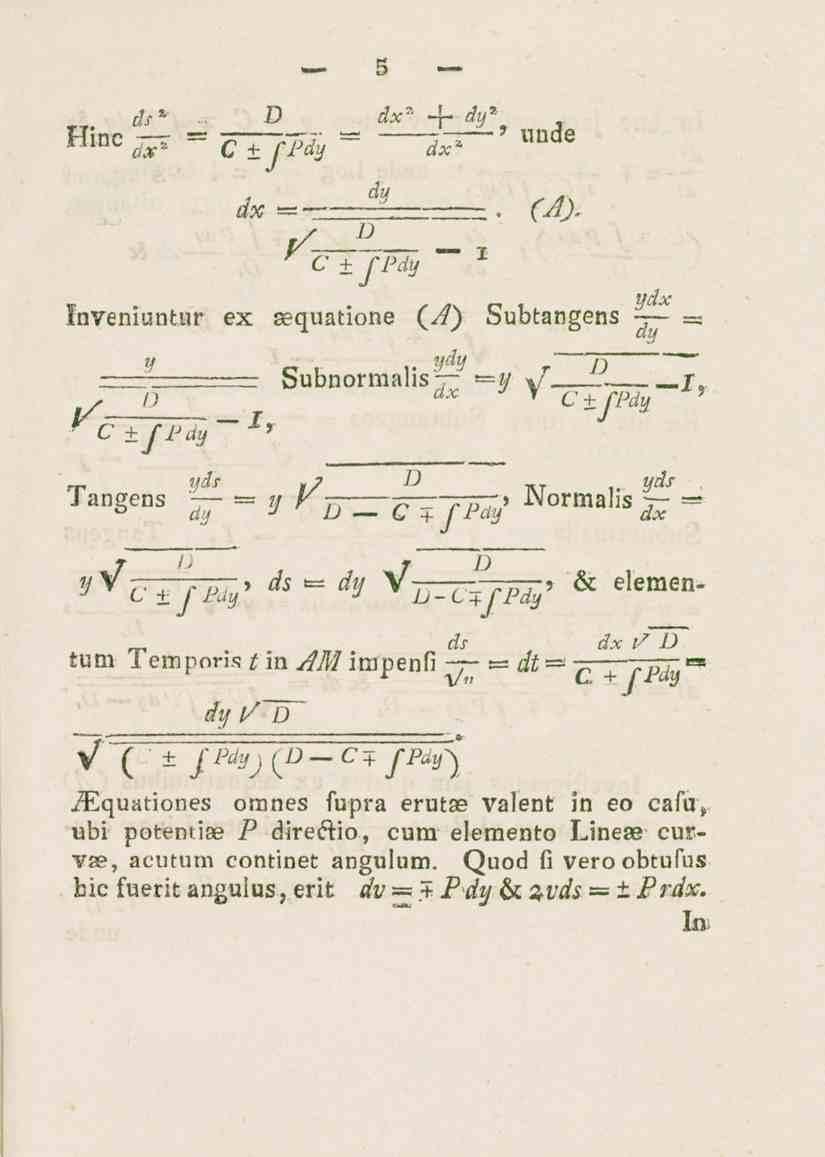 — 5 —
Hinc ds²/dx² = D/(C ± ∫Pdy) = (dx² + dy²)/dx², unde
dx = dy/√(D/(C ± ∫Pdy) — 1). (A).
Inveniuntur ex æquatione (A) Subtangens ydx/dy =
y/√(D/(C ± ∫Pdy) — 1), Subnormalis ydy/dx = y √(D/(C ± ∫Pdy) — 1),
Tangens yds/dy = y √(D/(D — C ∓ ∫Pdy)), Normalis yds/dx =
y √(D/(C ± ∫Pdy)), ds = dy √(D/(D - C ∓ ∫Pdy)), & elemen-
tum Temporis t in AM impenſi ds/√v = dt = dx √D/(C + ∫Pdy) =
dy √D/√(( ± ∫Pdy) (D — C ∓ ∫Pdy)).
Æquationes omnes ſupra erutæ valent in eo caſu,
ubi potentiæ P directio, cum elemento Lineæ cur-
væ, acutum continet angulum. Quod ſi vero obtuſus
hic fuerit angulus, erit dv = ∓ Pdy & 2vds = ± Prdx.
In